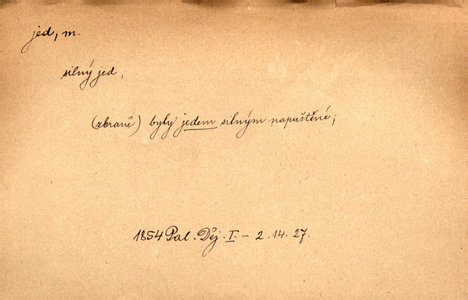 jed, m.
silný jed,
(zbraně) byly jedem silným napuštěné,
1854 Pal. Děj. I. – 2. 14. 27.